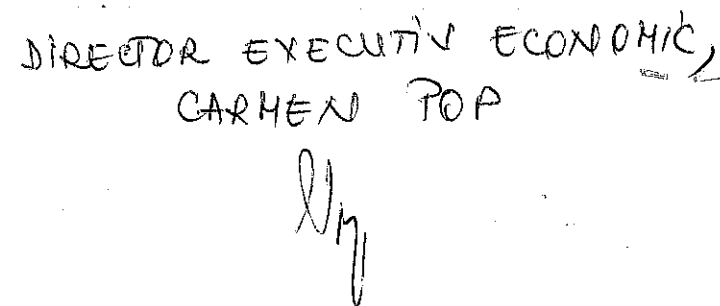 DIRECTOR EXECUTIV ECONOMIC,
CARMEN POP